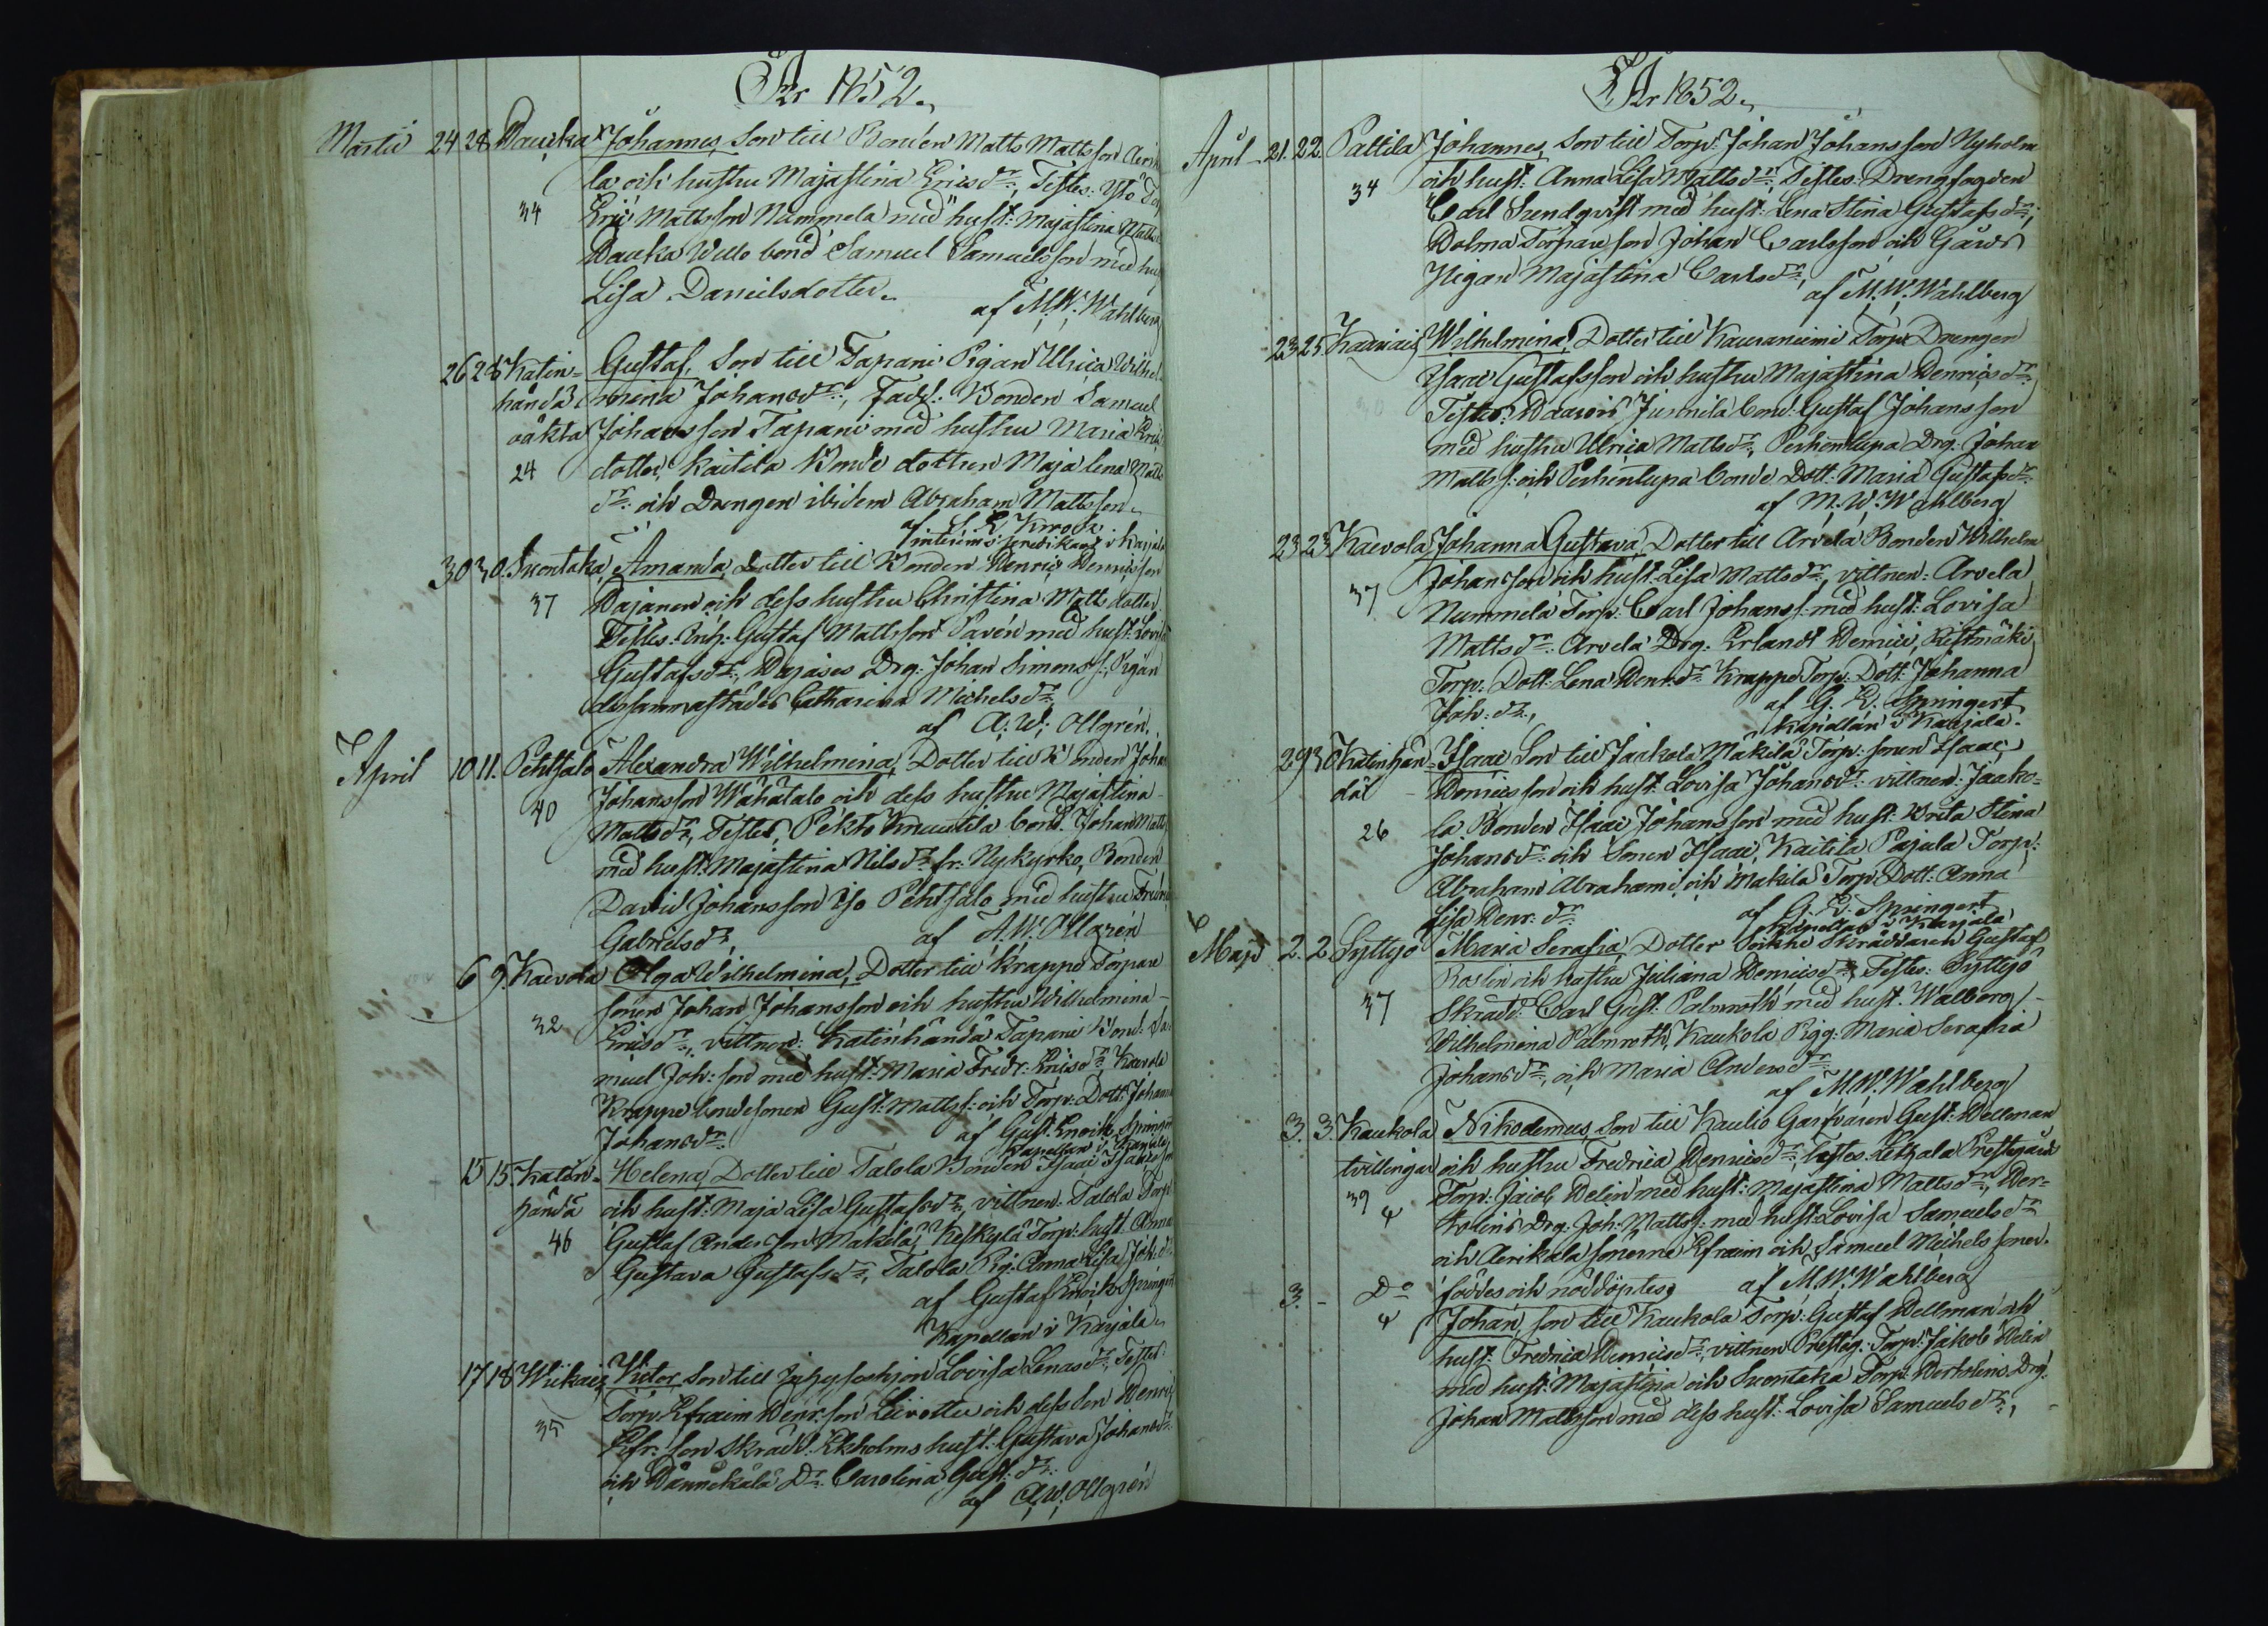 År 1852.
Martii 24 28 Dauka Johannes, Son till Bonden Matts Mattsson
la och hustru Majastina Ericsdr, Testes:
34 Eric Mattsson Nummela med hust: Majastina Matts
Dauka Wello bond Samuel Samuelsson med hu
Lisa Danielsdotter.
af M. W. Wahlberg
26 28 Katin= Gustaf, Son till Tapani Pigan Ulrica Wilhel
händä mina Johansdr, Fadd: Bonden Samuel
oäkta Johansson Tapani med hustru Maria Eric
24 dotter, Kaitila Bonde dottren Maja lena Matts
dr och Drengen ibidem Abraham Mattsson
af
interims predikant i Karjala
30 30. Suontaka, Amanda, dotter till Bonden Henric Henricsson
37 Dajanen och dess hustru Christina Mattsdotter
Testes: Inh: Gustaf Mattsson Pavén med hust: Lovisa
Gustafsdr, Dajases Drg: Johan Simonss:, Pigan
dersammastädes Catharina Michelsdr
af A. W. Ollgrén.
April 10 11. Pehtsalo Alexandra Wilhelmina, Dotter till Bonden Johan
40 Johansson Wähätalo och dess hustru Majastina
Mattsdr, Testes, Pehto Knuutila bond: Johan Matts
med hust: Majastina Nilsdr fr: Nykyrko, Bonden
David Johansson Yso Pehtsalo med hustru Fredrica
Gabrielsdr, af A. W. Ollgrén
6 9. Kaevola Olga Wilhelmina, Dotter till Krappe Torpare
sonen Johan Johansson och hustru Wilhelmina
32 Ericsdr, vittnen: Katinhändä Tapani Bond: Sa
muel Joh: son med hust: Maria Fredr: Ericsdr Kaevola
Krappe bondesonen Gust: Mattss: och Torp: Dott: Johanna
Johansdr. af Gust. Enoch Springert
Kapellan i Karjala
15 15. Katin- Helena, Dotter till Talola Bonden Isaac Isacsson
händä och hust: Maja Lisa Gustafsdr, vittnen: Talola Torp
46 Gustaf Andersson Mäkilä, Keskylä Torp: hust. Anna
Gustava Gustafsdr, Talola Pig: Anna Lisa Joh: dr
af Gustaf Enoch Springert
Kapellan i Karjala.
17 18 Wiikais Victor, Son till Inhyseshjon Lovisa Lenasdr, Testes
Torp: Efraim Henr:son Leivottu och dess son Henric
35 Efr: son Skrädd: Ekholms hust: Gustava Johansdr
och Dännikälä Dr. Carolina Gust: dr.
af A. W. Ollgrén
År 1852.
April 21. 22. Paltila Johannes, Son till Torp: Johan Johansson Nyholm
34 och hust: Anna Lisa Mattsdr, Testes: Drengfogden
Carl Sundqvist med hust: Lena Stina Gustafsdr,
Dolma Torpare son Johan Carlsson och Gårds
Pigan Majastina Carlsdr,
af M. W. Wahlberg
23 25 Kaariais Wilhelmina, Dotter till Kauraniemi Torp: Drengen
Isaac Gustafsson och hustru Majastina Henricsdr
30 Testes: Junnila bond: Gustaf Johansson
med hustru Ulrica Mattsdr, Perhenlupa Drg. Johan
Matts s: och Perhenlupa bonde Dott: Maria Gustafsdr
af M. W. Wahlberg
23 23 Kaevola Johanna Gustava, Dotter till Arvela Bonden Wilhelm
37 Johansson och hust: Lisa Mattsdr, vittnen: Arvela
Nummela Torp: Carl Johanss: med hust: Lovisa
Mattsdr: Arvela Drg. Erlandt Henrici, Ristmäki
Torp: Dott: Lena Henr: dr. Krappe Torp: Dott: Johanna
Joh: dr, af G. E. Springert
Kapellan i Karjala.
29 30 Katinhän- Isaac Son till Jaakola Mäkilä Torp: sonen Isaac
dät Henricsson och hust: Lovisa Johansdr. vittnen: Jaako=
26 la Bonden Isaac Johansson med hust: Brita Stina
Johansdr. och sonen Isaac, Kaitila Pajula Torp:
Abraham Abrahami, och Mäkilä Torp: Dott: Anna
Lisa Henr: dr. af G. E. Springert
Kapellan i Karjala
Maji 2. 2. Syttyö Maria Serafia, Dotter Skräddaren Gustaf
Roslin och hustru Juliana Henricsdr, Testes: Syttyö
37 Skrädd: Carl Gust. Palmroth med hust. Walborg
Wilhelmina Palmroth, Kaukola Pigg: Maria Serafia
Johansdr, och Maria Andersdr
af M. W. Wahlberg
3. 3. Kaukola Nikodemus, Son till Kaulio Garfvaren Gust: Hellman
tvillingar och hustru Fredrica Henricsdr, Testes: Prestgård
39 Torp: Jacob Helin med hust: Majastina Mattsdr,
Drg. Joh: Matts s: med hust: Lovisa Samuelsdr
och Aerikala sönerne Efraim och Samuel Michels söner.
3. - Do föddes och nöddöptes af M. W. Wahlberg
Johan, Son till Kaukola Torp: Gustaf Hellman och
hust: Fredrica Henricsdr, vittnen Presteg: Torp: Jakob Helin
med hust: Majastina och Suontaka Torp: Drg:
Johan Mattsson med dess hust: Lovisa Samuelsdr,